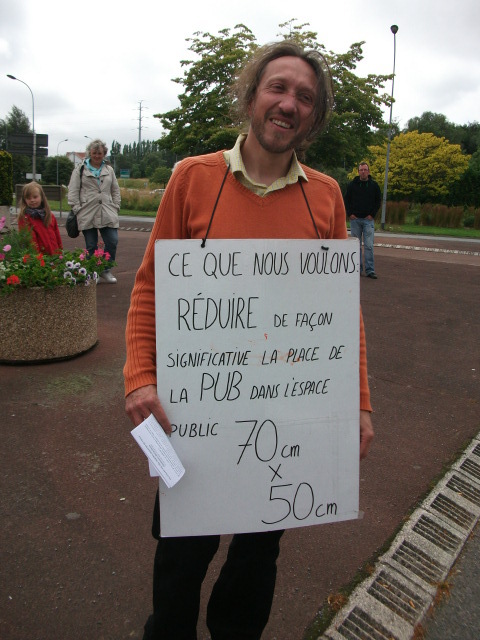 CE QUE NOUS VOULONS
RÉDUIRE DE FAÇON
SIGNIFICATIVE LA PLACE DE
LA PUB DANS L'ESPACE
PUBLIC 70 cm
X
50 cm